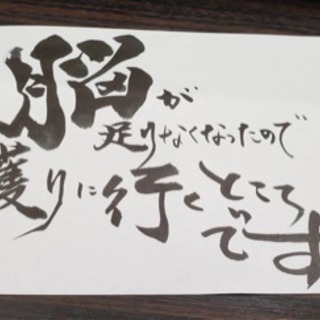 脳が
足りなくなったので
獲りに行くところ
です